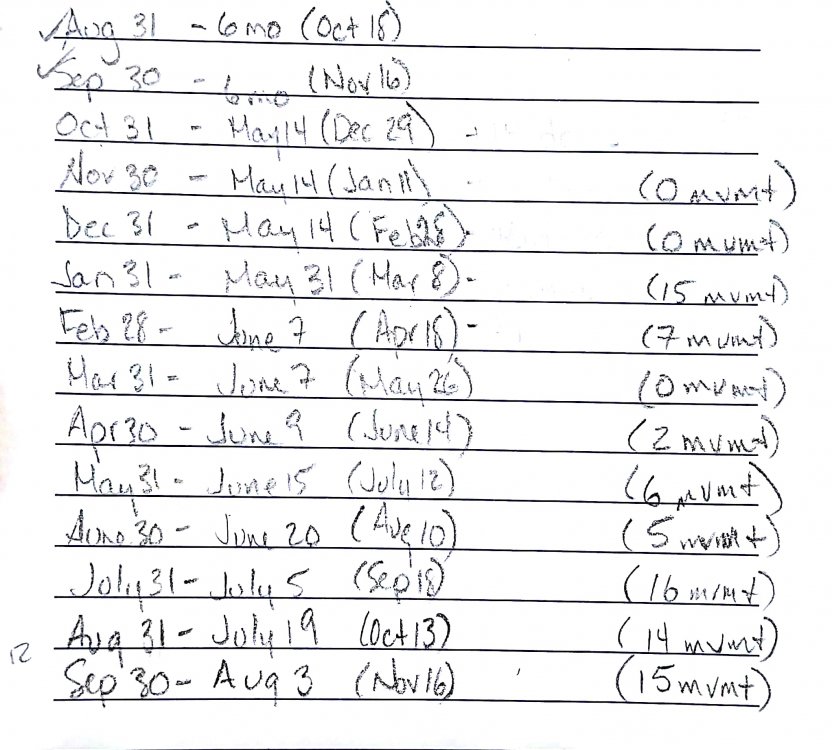 ✓Aug 31 - 6mo (Oct 18)
✓Sep 30 - 6mo (Nov 16)
Oct 31 - May 14 (Dec 29) -
Nov 30 - May 14 (Jan 11) (0 mvmt)
Dec 31 - May 14 (Feb 28) - (0 mvmt)
Jan 31 - May 31 (Mar 8) - (15 mvmt)
Feb 28 - June 7 (Apr 18) - (7 mvmt)
Mar 31 - June 7 (May 26) (0 mvmt)
Apr 30 - June 9 (June 14) (2 mvmt)
May 31 - June 15 (July 12) (6 mvmt)
June 30 - June 20 (Aug 10) (5 mvmt)
July 31 - July 5 (Sep 18) (16 mvmt)
Aug 31 - July 19 (Oct 13) (14 mvmt)
12 Sep 30 - Aug 3 (Nov 16) (15 mvmt)